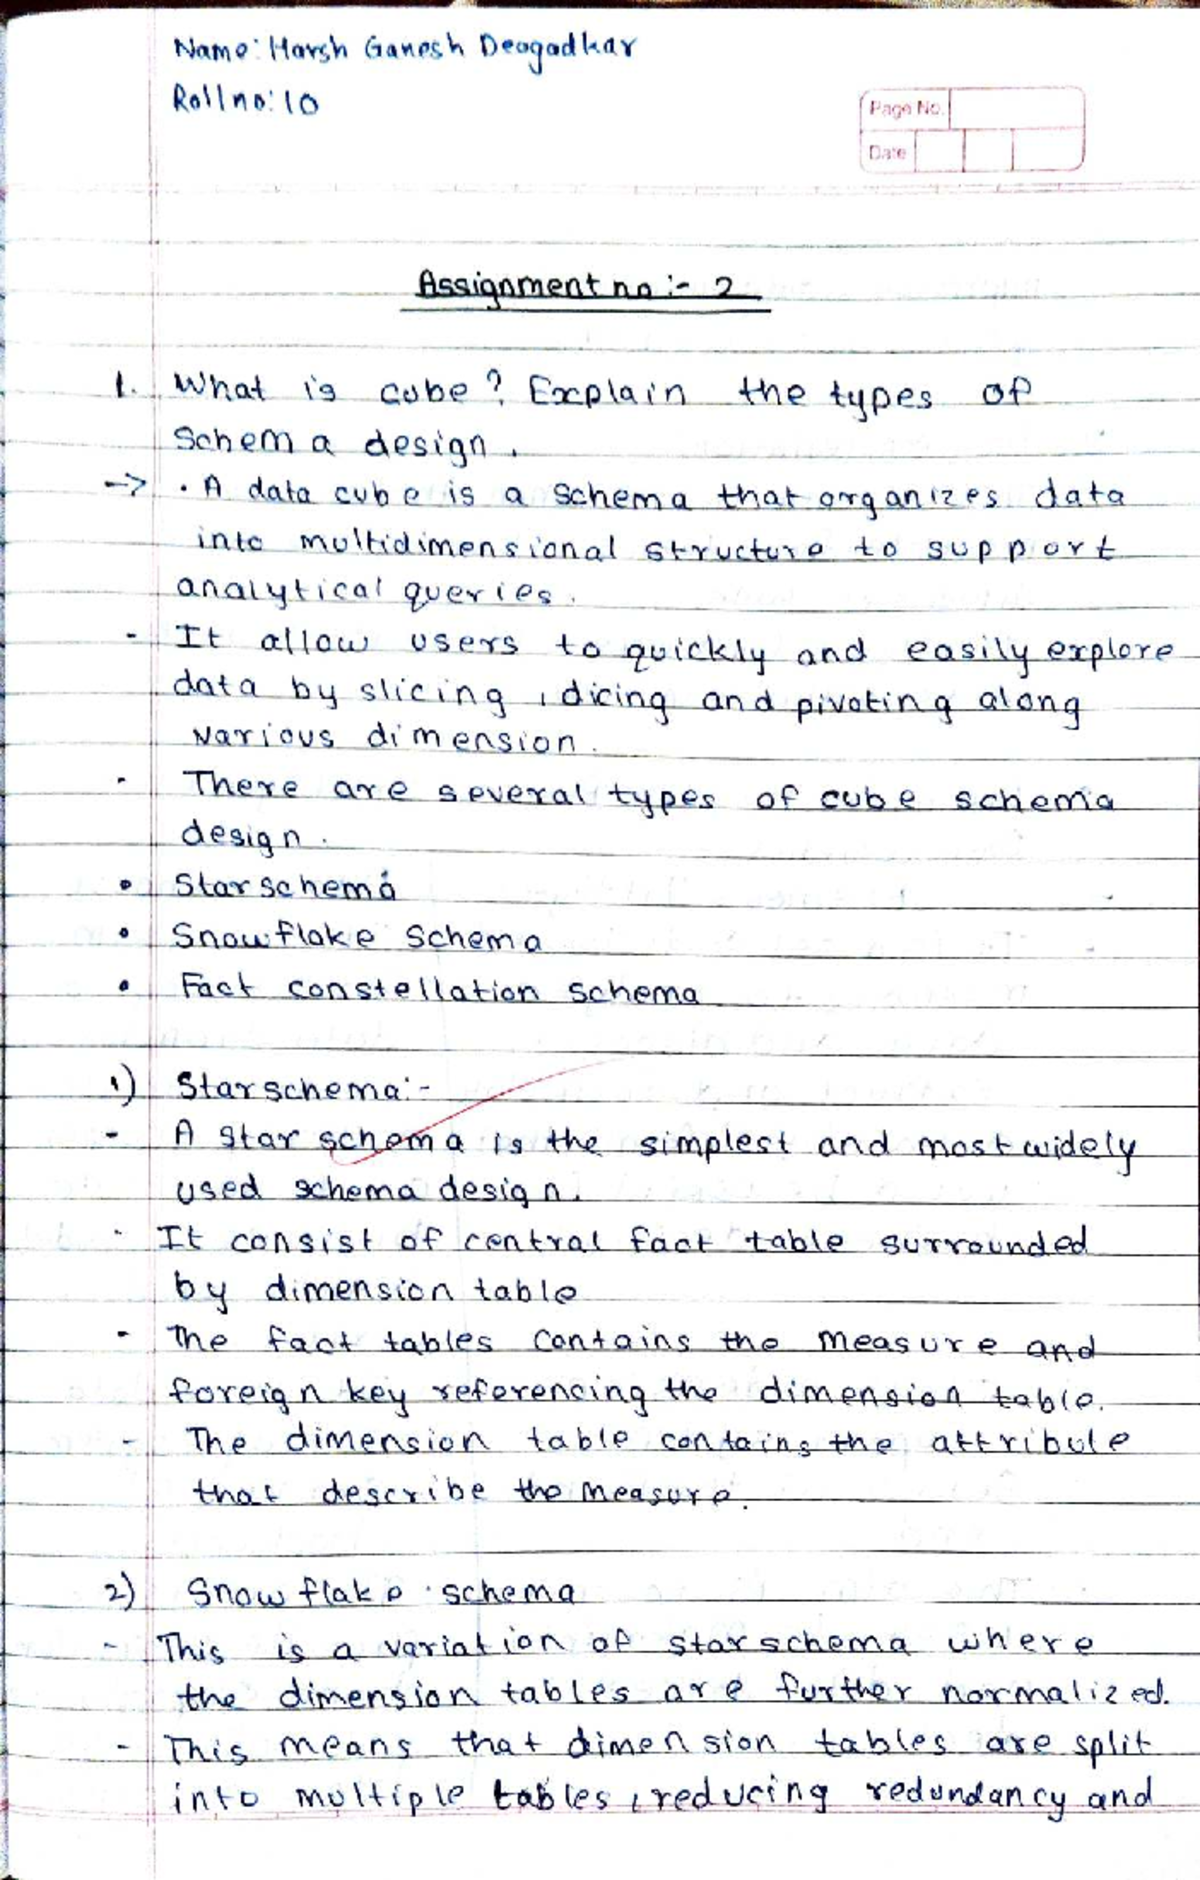 Name: Harsh Ganesh Deogadkar
Roll no: 10
Page No.
Date
Assignment no :- 2
1. What is cube? Explain the types of
Schema design.
-> · A data cube is a schema that organizes data
into multidimensional structure to support
analytical queries.
- It allow users to quickly and easily explore
data by slicing, dicing and pivoting along
various dimension.
- There are several types of cube schema
design.
• Star schema
• Snowflake Schema
• Fact constellation schema
1) Star schema:-
- A star schema is the simplest and most widely
used schema design.
- It consist of central fact table surrounded
by dimension table
- The fact tables contains the measure and
foreign key referencing the dimension table.
- The dimension table contains the attribute
that describe the measure.
2) Snowflake schema
- This is a variation of star schema where
the dimension tables are further normalized.
- This means that dimension tables are split
into multiple tables, reducing redundancy and